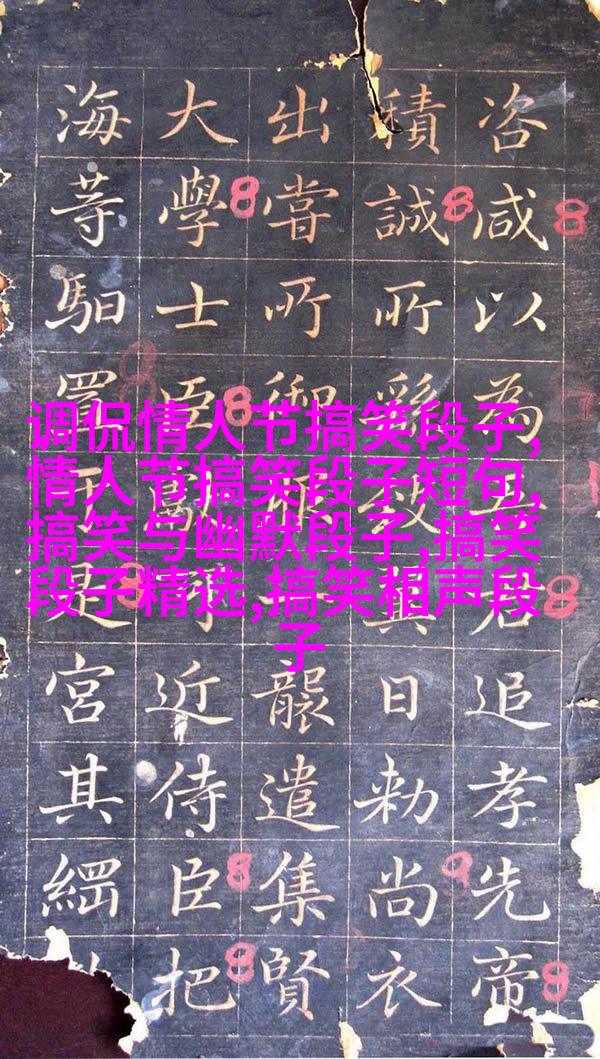 调侃情人节搞笑段子,
情人节搞笑段子短句,
搞笑与幽默段子,搞笑
段子精选,搞笑相声段
子
咨咸以為君追孝先帝
積誠所其日勑尚衣
出嘗所御襲遣集賢
大學士臣近侍臣把
海等馹宮其綱